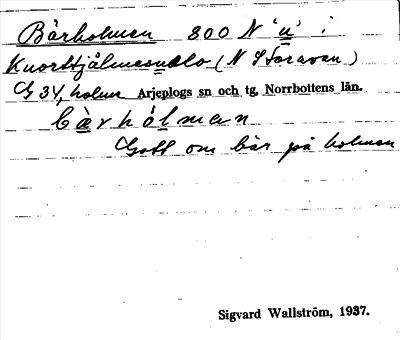 Bärholmen 800 N 'u' i
Knorttjålmesuolo (N Storavan)
G 34, holm Arjeplogs sn och tg, Norrbottens län.
bàrhålman
Gott om bär på holmen
Sigvard Wallström, 1937.